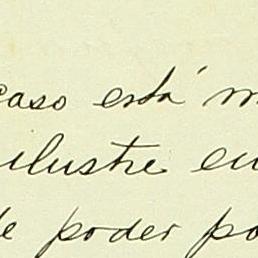 caso está m
ilustre en
de poder po